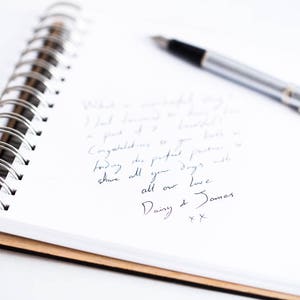 What a wonderful day
a part of it
Congratulations to you both
finding the perfect partner to
share all your days with
all our love
Daisy & James
xx